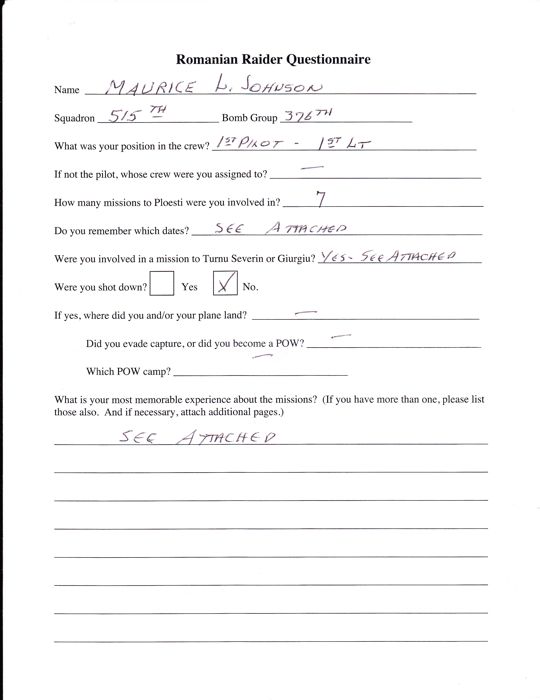 Romanian Raider Questionnaire
Name MAURICE L. JOHNSON
Squadron 515 TH Bomb Group 376TH
What was your position in the crew? 1ST PILOT - 1ST LT
If not the pilot, whose crew were you assigned to? —
How many missions to Ploesti were you involved in? 7
Do you remember which dates? SEE ATTACHED
Were you involved in a mission to Turnu Severin or Giurgiu? YES - SEE ATTACHED
Were you shot down? Yes X No.
If yes, where did you and/or your plane land? —
Did you evade capture, or did you become a POW? —
Which POW camp? —
What is your most memorable experience about the missions? (If you have more than one, please list
those also. And if necessary, attach additional pages.)
SEE ATTACHED